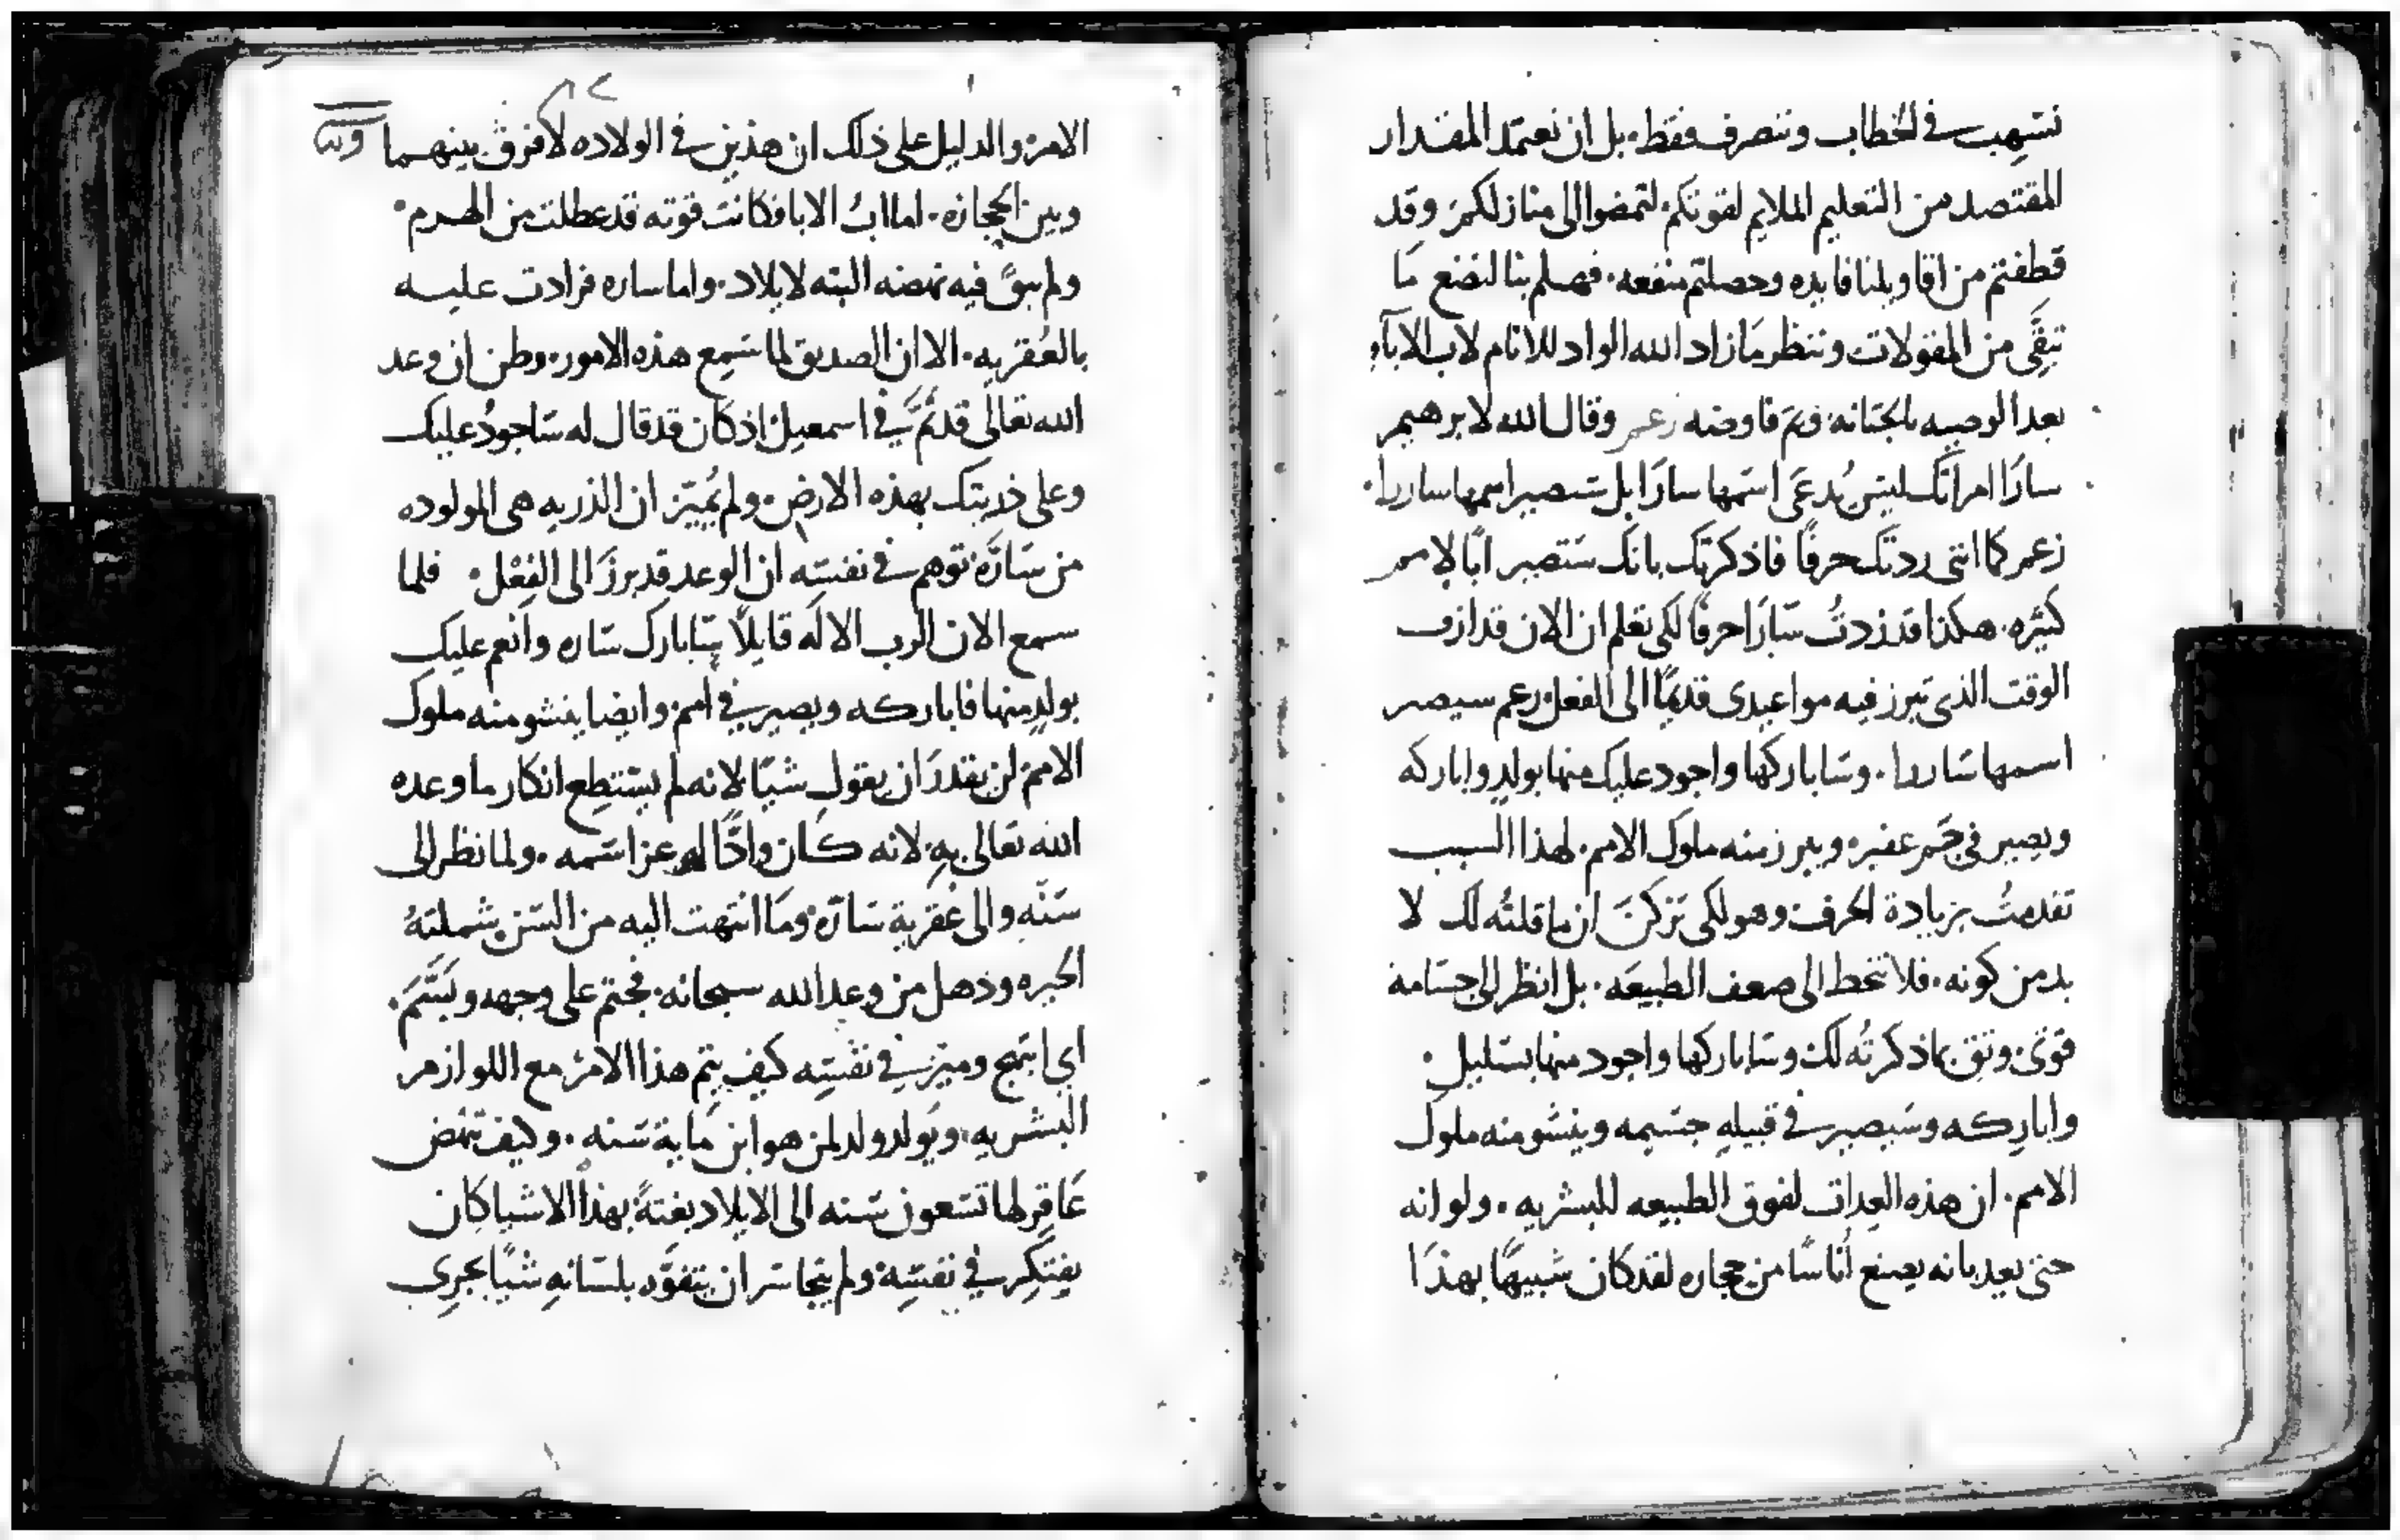 نسهب في الخطاب وننصرف فقط. بل ان نعتمد المقدار
المقتصد من التعليم الملايم لقوتكم. لتمضوا الى منازلكم وقد
قطفتم من اقاويلنا فايده وحصلتم منفعه. فهلم بنا لنضع مَا
تبقَّى من المقولات وننظر مَا زاد الله الواد للانام لاب الآباء
بعد الوصيه بالختانه وثم فاوضه زعم وقال الله لابرهيم
سارَا امراتك ليسَ يُدعَى اسمها سارَا بل ستصير اسمها ساررا.
زعم كما انني زدتك حرفًا فاذكرتك بانك ستصير ابًا لامم
كثيره. هكذا قد زدتُ سَارَا حرفًا لكي تعلم ان الان قد ازف
الوقت الذي تبرز فيه مواعيدي قديمًا الى الفعل. زعم سيصير
اسمها سَاررا. وسَاباركها واجود عليك منها بولدٍ واباركه
ويصير في جَم غفيره ويبرز منه ملوك الامم. لهذا السبب
تقدمتُ بزيادة الحرف وهو لكي تزكنَ ان ما قلتُه لك لا
بد من كونه. فلا تنحط الى ضعف الطبيعَه. بل انظر الى جسَامة
قوتي. وثق بما ذكرتُه لك وسَاباركها واجود منها بسَليل.
واباركه وسَيصير في قبيلهٍ جسَيمه وينشو منه ملوك
الامم. ان هذه العِدات لفوق الطبيعه للبشريه. ولو انه
حتى يعد بانه يصنع أناسًا من حجاره لقد كان شبيهًا بهذَا
٨٢
الامر. والدليل على ذلك ان هذين في الولاده لا فرق بينهما
وبين الحجاره. اما ابُ الابا فكانت قوته قد عطلت من الهرم.
ولم يبقَ فيه نهضه البته لايلاد. واما ساره فزادت عليه
بالعُقريه. الا ان الصديق لما سَمع هذه الامور. وظن ان وعد
الله تعالى قد تمَّ في اسمعيل اذ كان قد قال له سَاجودُ عليك
وعلى ذريتك بهذه الارض. ولم يُميّز ان الذريه هى المولوده
من سَارَه توهم في نفسِه ان الوعد قد برزَ الى الفِعْل. فلما
سمع الان الرب الالَه قايلًا سَابارك سَاره وانعم عليك
بولدٍ منها فاباركه ويصير في امم. وايضا ينشو منه ملوك
الامم. لن يقدرَ ان يقول شيًا لانه لم يستطع انكار ما وعده
الله تعالى بهِ. لانه كان وادًّا له عز اسَمه. ولما نظر الى
سَنّهِ والى عُقرية سَارَه. ومَا انتهت اليه من السَن. شملتهُ
الحيره وذهل من وعد الله سبحانه. فجثم على وجهه وبَسَّمَ.
اي ابتهج وميّز في نفسِه كيف يتم هذا الامرُ مع اللوازم
البشريه، ويَولد ولد لمن هو ابن مَاية سَنه. وكيف تنهض
عَاقِر لها تسَعون سَنه الى الايلاد بغتةً. بهذا الاشيا كان
يفتكِر في نفسِه. ولم يتجاسَر ان يتفوَّه بلسَانهِ شيًا يجرِي